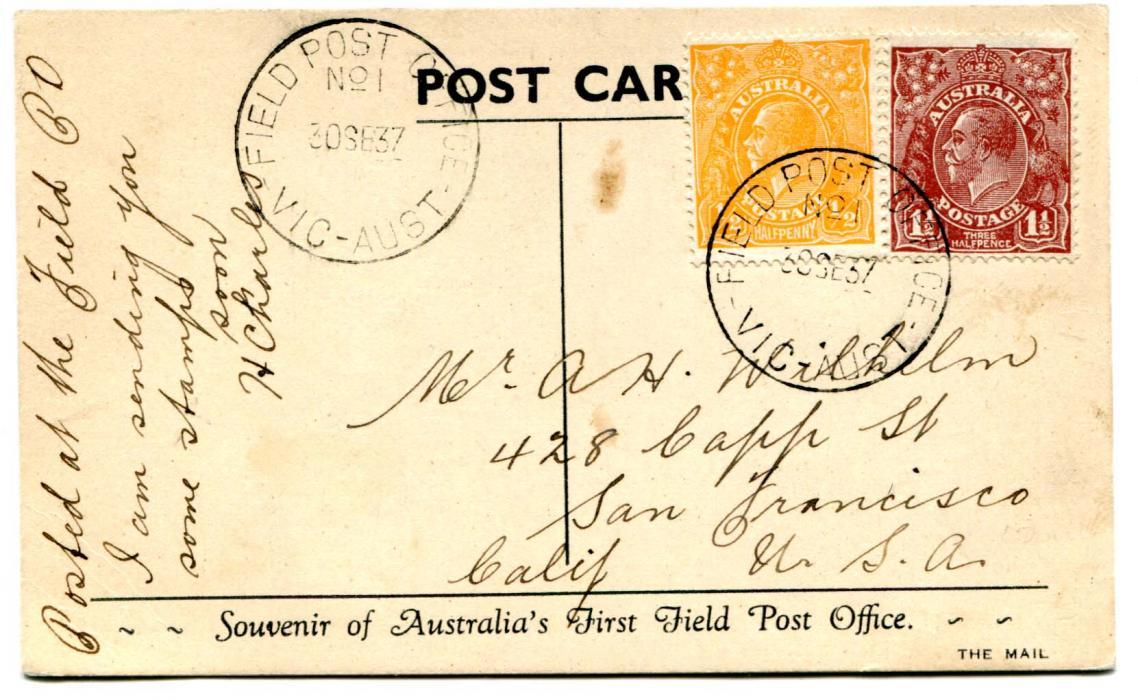 FIELD POST OFFICE
No 1
30SE37
VIC-AUST
POST CAR
AUSTRALIA
POSTAGE
HALFPENNY
AUSTRALIA
POSTAGE
1½ THREE HALFPENCE 1½
FIELD POST OFFICE
No 1
30SE37
VIC-AUST
Posted at the Field P O
I am sending you
some stamps
soon
H Charles
Mr. A H. Wilhelm
428 Capp St
San Francisco
Calif U. S. A.
~ ~ Souvenir of Australia's First Field Post Office. ~ ~
THE MAIL